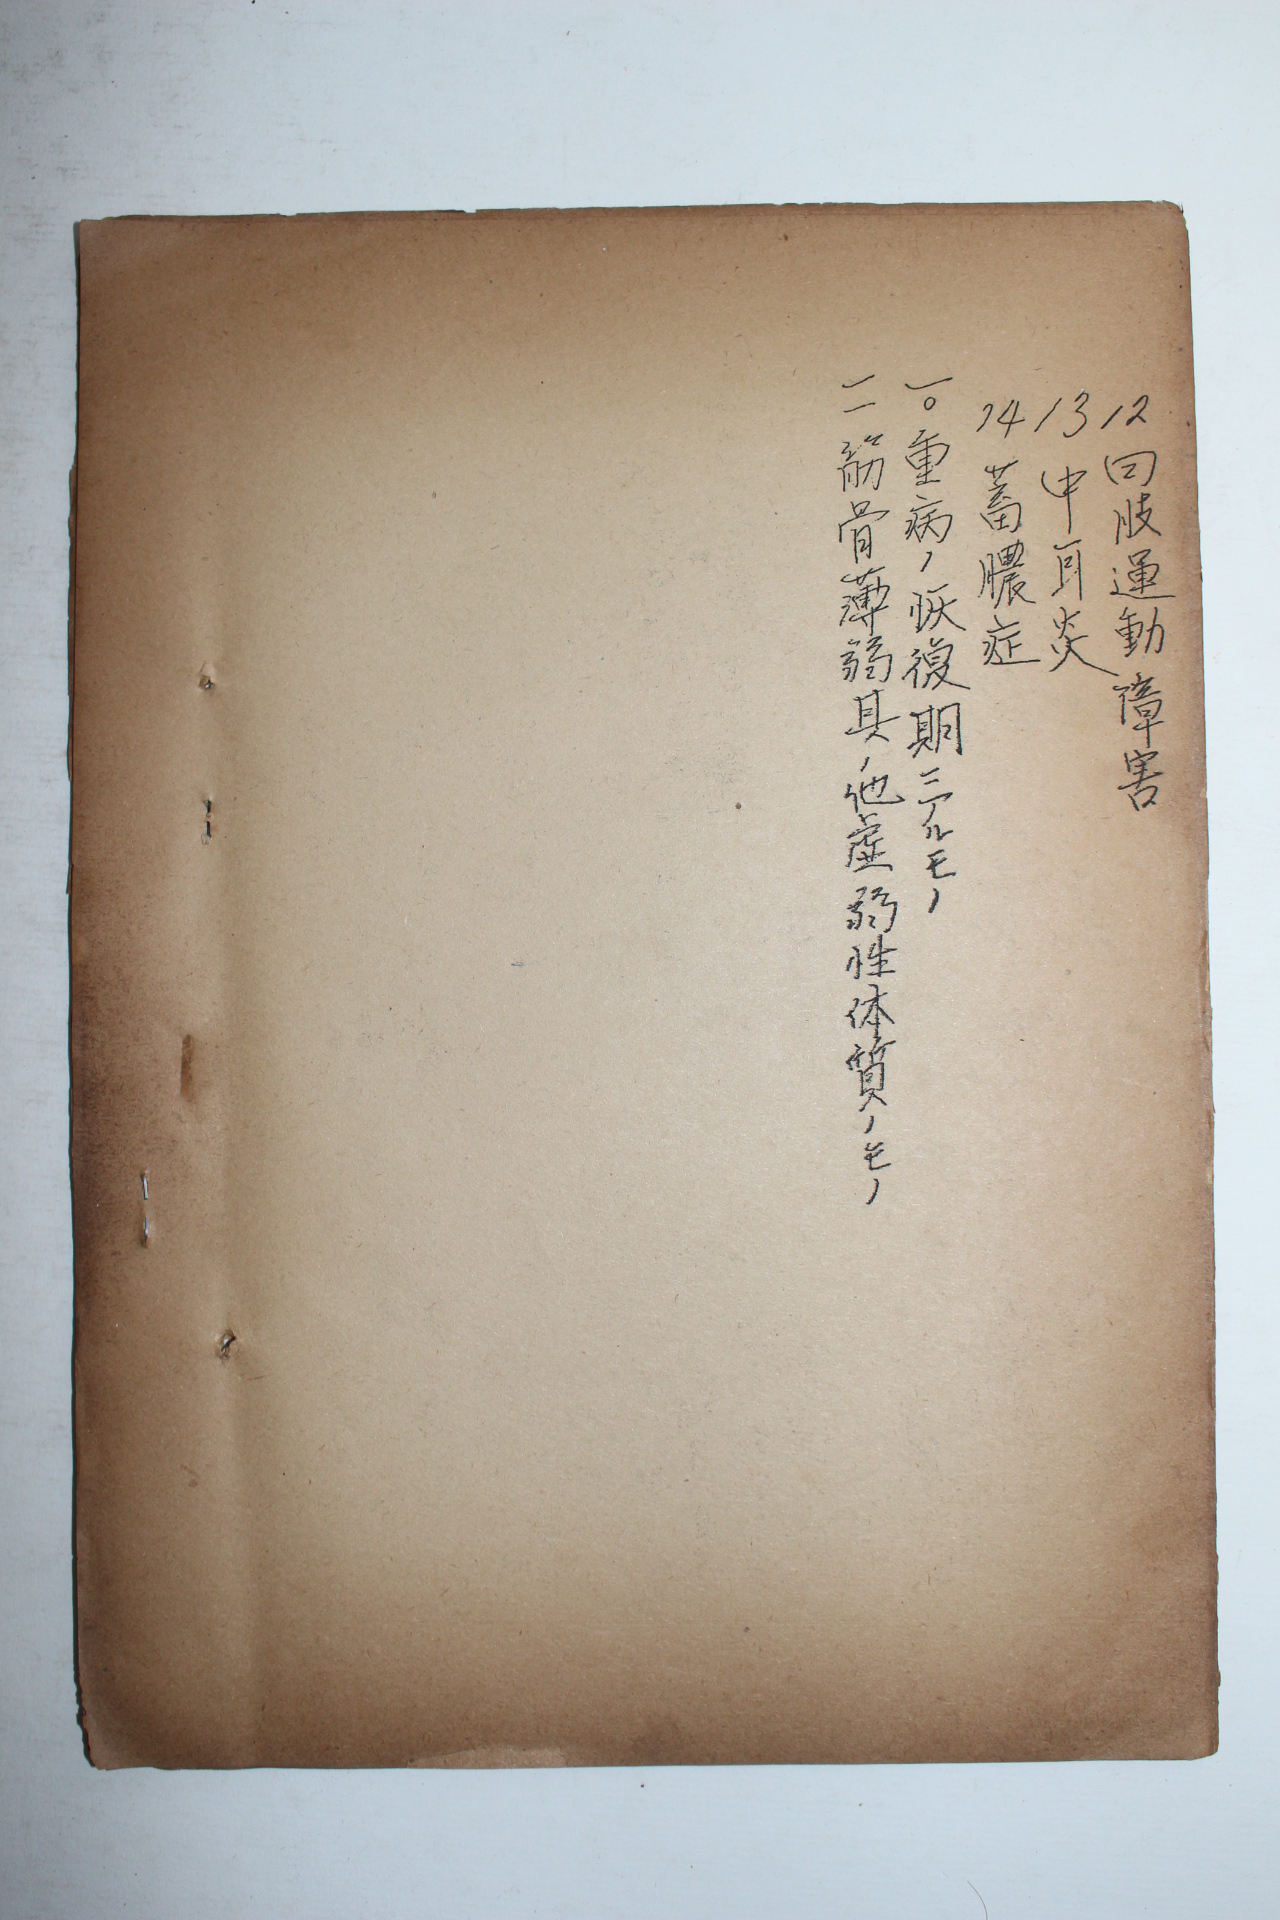 12 四肢運動障害
13 中耳炎
14 蓄膿症
一〇 重病ノ恢復期ニアルモノ
一一 筋骨薄弱其ノ他虚弱性体質ノモノ